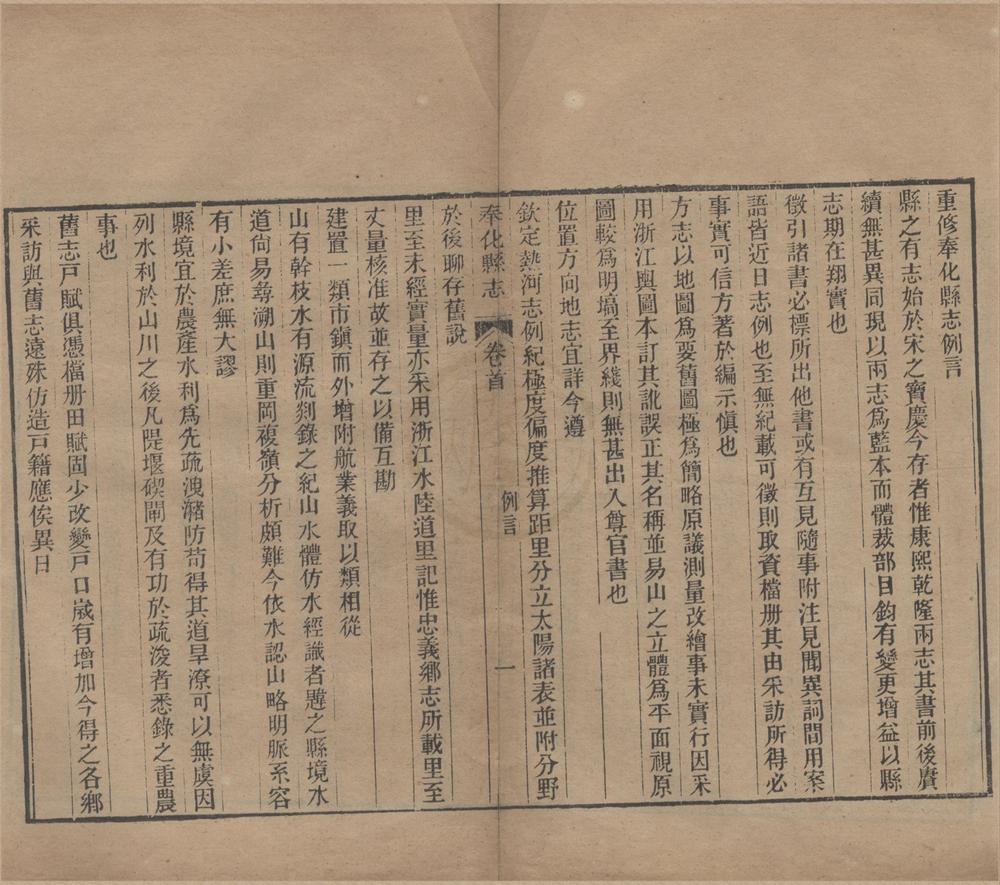 重修奉化縣志例言
縣之有志始於宋之寶慶今存者惟康熙乾隆兩志其書前後賡
續無甚異同現以兩志爲藍本而體裁部目鈞有變更增益以縣
志期在翔實也
徵引諸書必標所出他書或有互見隨事附注見聞異詞間用案
語皆近日志例也至無紀載可徵則取資檔册其由采訪所得必
事實可信方著於編示愼也
方志以地圖爲要舊圖極爲簡略原議測量改繪事未實行因采
用浙江輿圖本訂其訛誤正其名稱並易山之立體爲平面視原
圖較爲明塙至界綫則無甚出入尊官書也
位置方向地志宜詳今遵
欽定熱河志例紀極度偏度推算距里分立太陽諸表並附分野
奉化縣志
卷首
例言
一
於後聊存舊說
里至未經實量亦采用浙江水陸道里記惟忠義鄉志所載里至
丈量核准故並存之以備互勘
建置一類市鎭而外增附航業義取以類相從
山有幹枝水有源流剡錄之紀山水體仿水經識者韙之縣境水
道尙易尋溯山則重岡複嶺分析頗難今依水認山略明脈系容
有小差庶無大謬
縣境宜於農產水利爲先疏洩瀦防苟得其道旱潦可以無虞因
列水利於山川之後凡隄堰碶閘及有功於疏浚者悉錄之重農
事也
舊志戸賦俱憑檔册田賦固少改變戸口歲有增加今得之各鄉
采訪與舊志遠殊仿造戸籍應俟異日